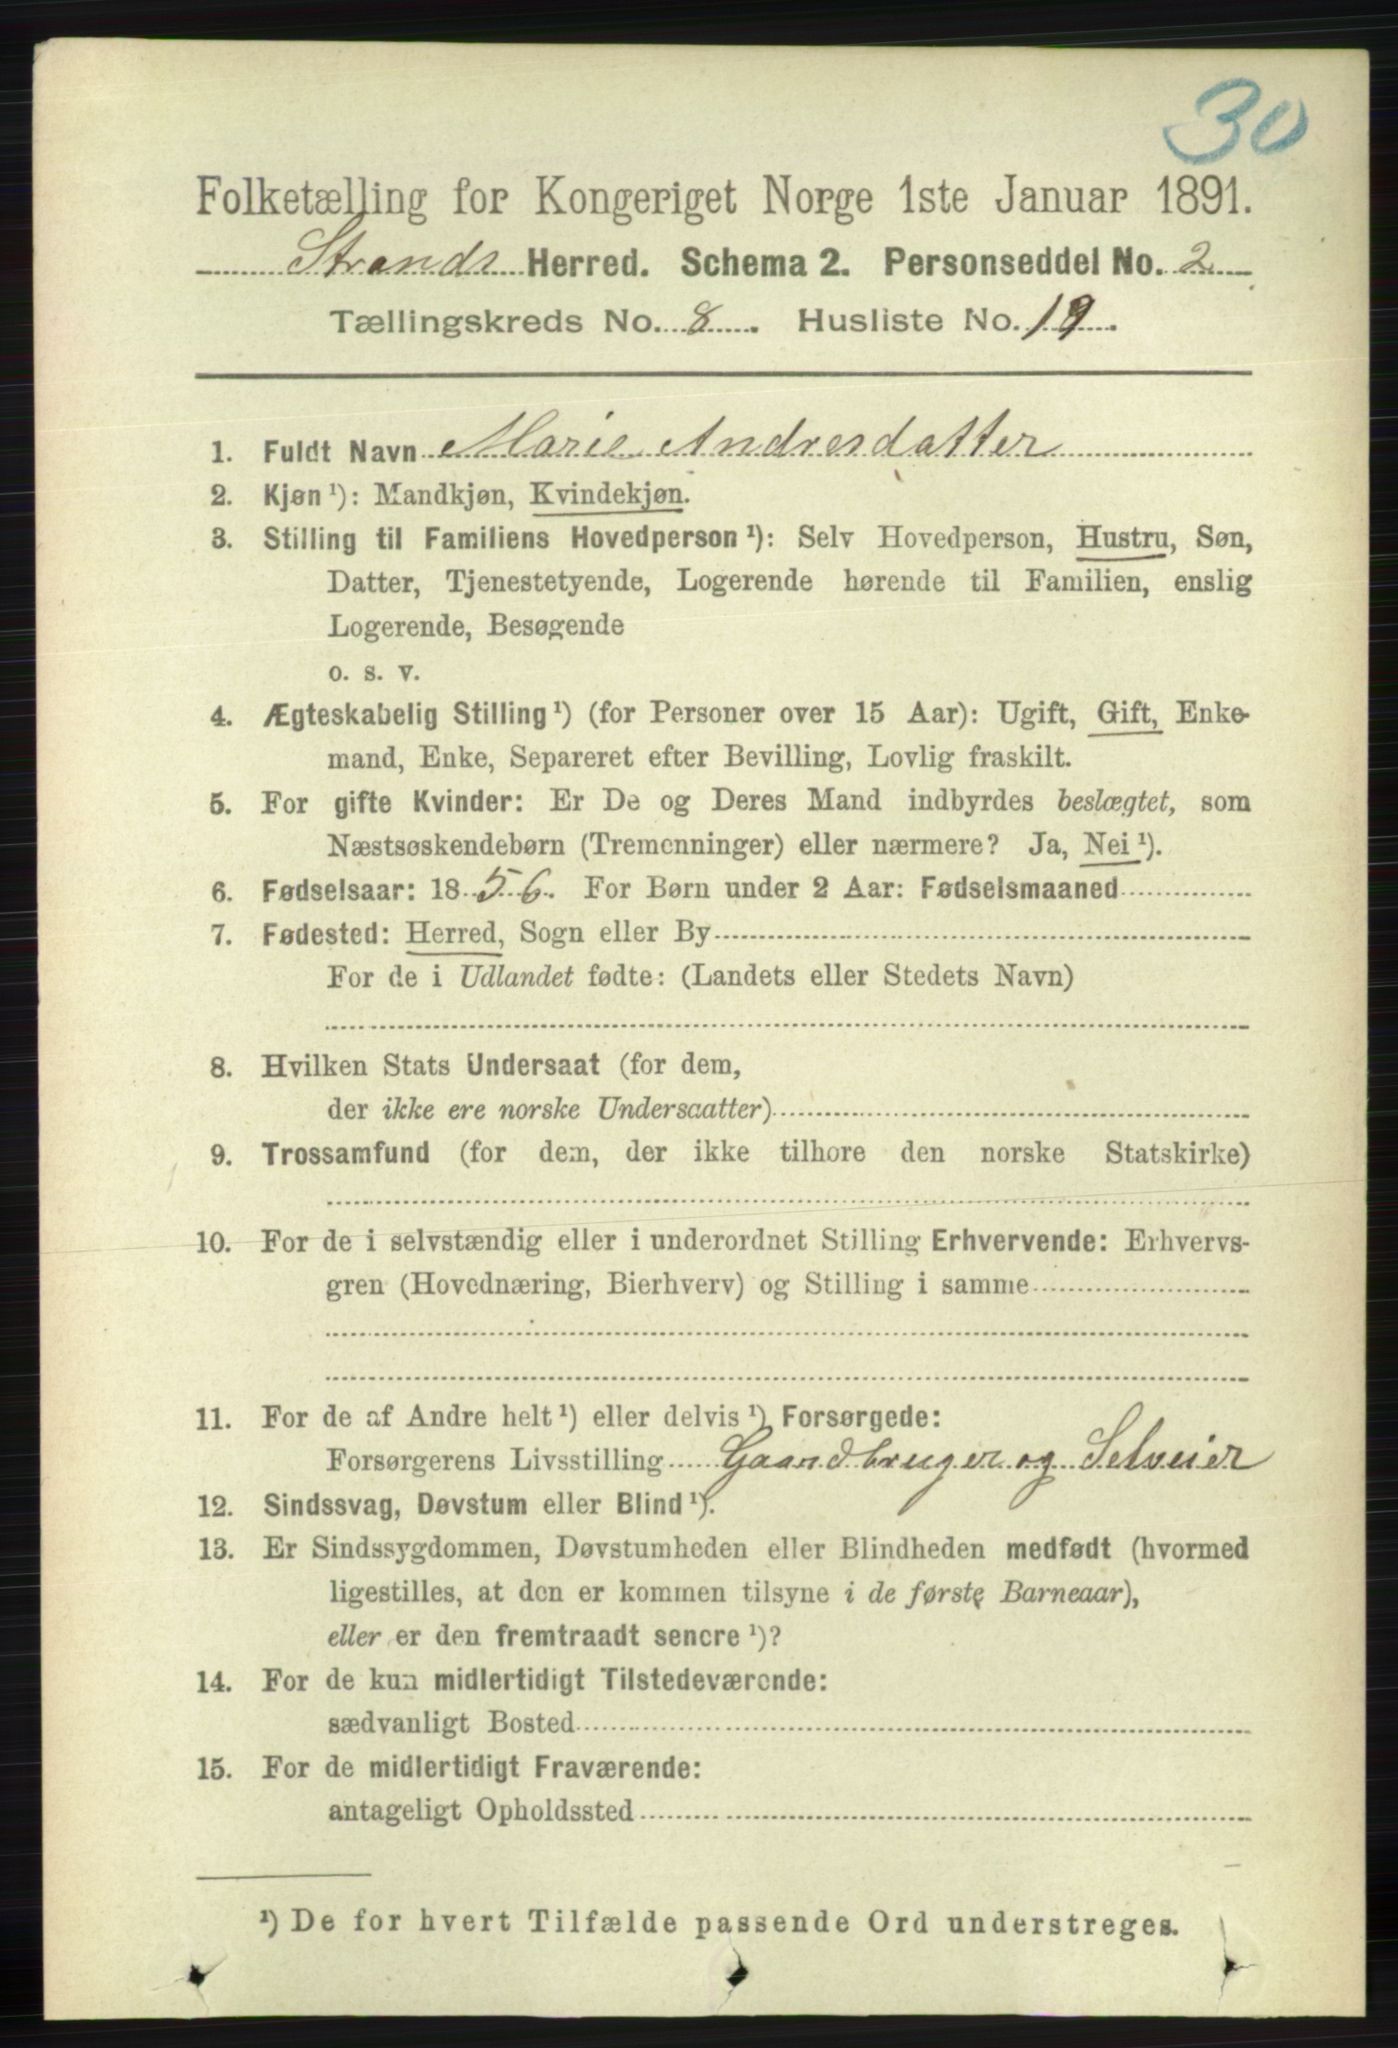 30
Folketælling for Kongeriget Norge 1ste Januar 1891.
Strands Herred. Schema 2. Personseddel No. 2
Tællingskreds No. 8. Husliste No. 19.
1. Fuldt Navn Marie Andresdatter
2. Kjøn¹): Mandkjøn, Kvindekjøn.
3. Stilling til Familiens Hovedperson¹): Selv Hovedperson, Hustru, Søn,
Datter, Tjenestetyende, Logerende hørende til Familien, enslig
Logerende, Besøgende
o. s. v.
4. Ægteskabelig Stilling¹) (for Personer over 15 Aar): Ugift, Gift, Enke-
mand, Enke, Separeret efter Bevilling, Lovlig fraskilt.
5. For gifte Kvinder: Er De og Deres Mand indbyrdes beslægtet, som
Næstsøskendebørn (Tremenninger) eller nærmere? Ja, Nei¹).
6. Fødselsaar: 1856. For Børn under 2 Aar: Fødselsmaaned
7. Fødested: Herred, Sogn eller By
For de i Udlandet fødte: (Landets eller Stedets Navn)
8. Hvilken Stats Undersaat (for dem,
der ikke ere norske Undersaatter)
9. Trossamfund (for dem, der ikke tilhore den norske Statskirke)
10. For de i selvstændig eller i underordnet Stilling Erhvervende: Erhvervs-
gren (Hovednæring, Bierhverv) og Stilling i samme
11. For de af Andre helt¹) eller delvis¹) Forsørgede:
Forsørgerens Livsstilling Gaardbruger og Selveier
12. Sindssvag, Døvstum eller Blind¹).
13. Er Sindssygdommen, Døvstumheden eller Blindheden medfødt (hvormed
ligestilles, at den er kommen tilsyne i de første Barneaar),
eller er den fremtraadt senere¹)?
14. For de kun midlertidigt Tilstedeværende:
sædvanligt Bosted
15. For de midlertidigt Fraværende:
antageligt Opholdssted
¹) De for hvert Tilfælde passende Ord understreges.